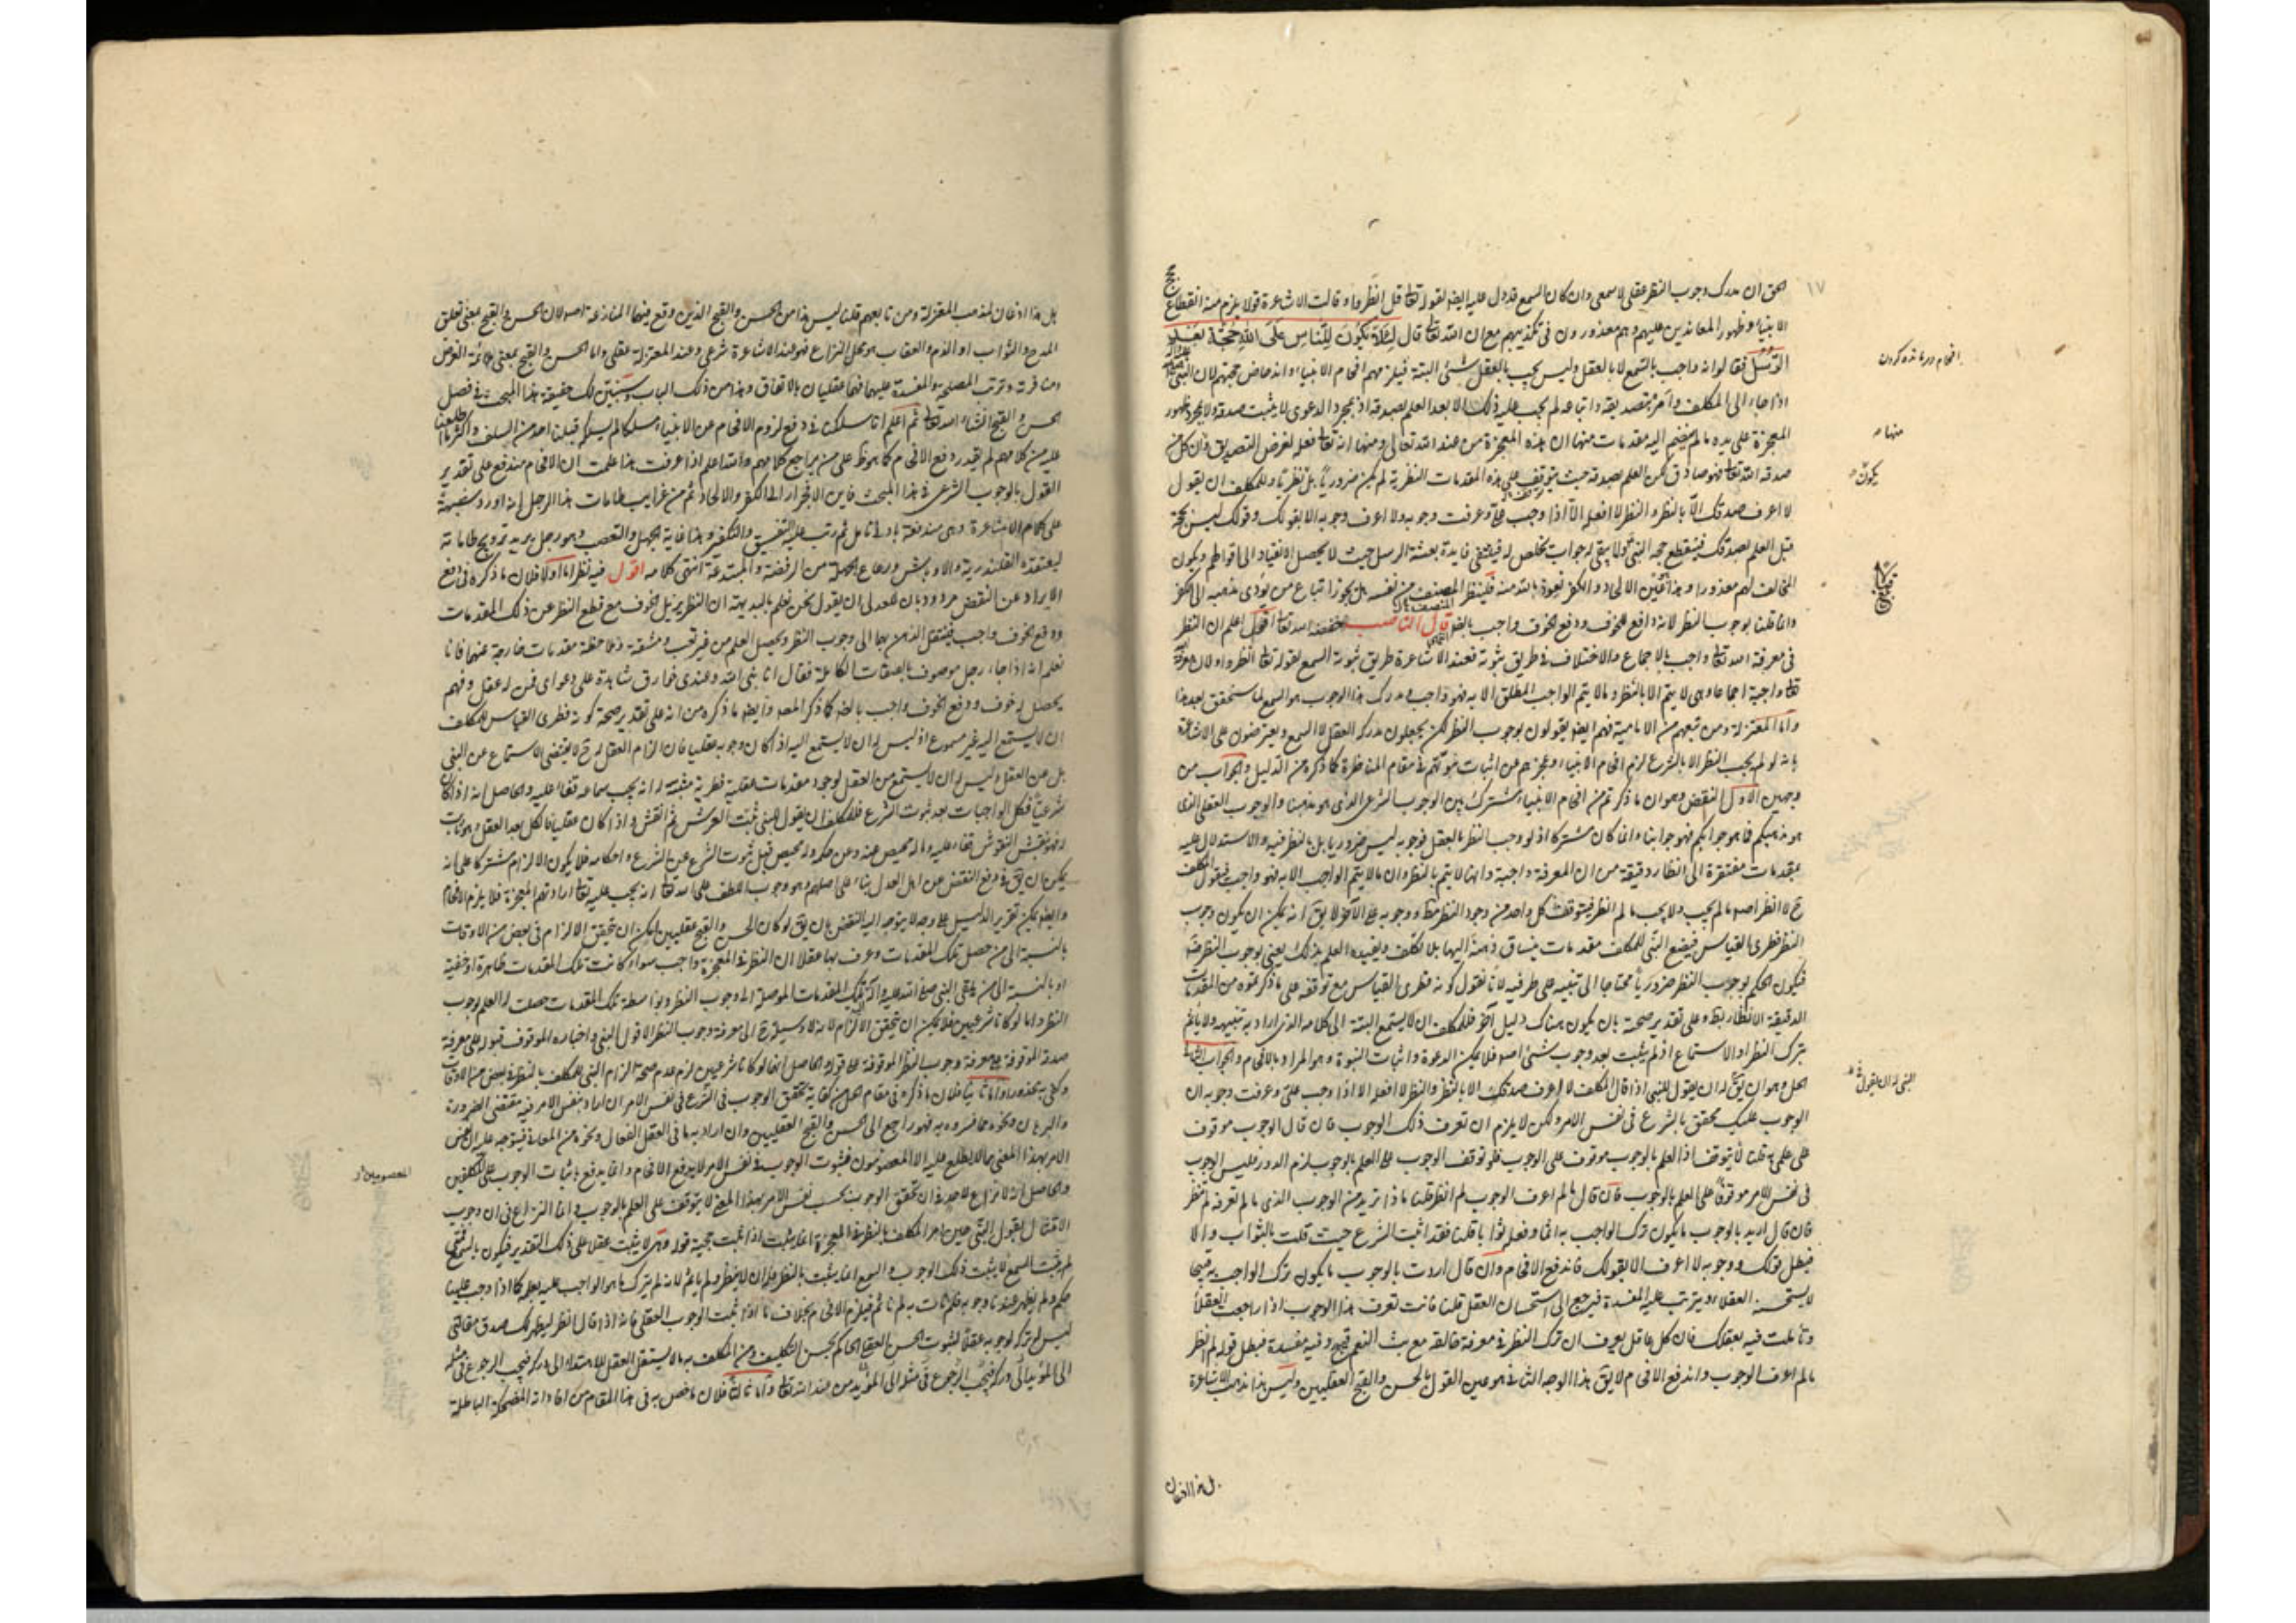 الحق ان مدرك وجوب النظر عقلي لا سمعي وان كان السمع قد دل عليه ايضا لقوله تعا قل انظروا وقالت الاشاعرة قولا يلزم منه انقطاع
الانبياء وظهور المعاندين عليهم وهم معذورون في تكذيبهم مع ان الله تعا قال لئلا يكون للناس على الله حجة بعد
الرسل فقالوا انه واجب بالسمع لا بالعقل وليس يجب بالعقل شئ البتة فيلزمهم افحام الانبياء واندحاض حجتهم لان النبي
اذا جاء الى المكلف وامره بتصديقه واتباعه لم يجب عليه ذلك الا بعد العلم بصدقه اذ بمجرد الدعوى لا يثبت صدقه ولا بمجرد ظهور
المعجزة على يده ما لم ينضم اليه مقدمات منها ان هذه المعجزة من عند الله تعالى ومنها انه تعا فعله لغرض التصديق وان كل من
صدقه الله تعا فهو صادق لكن العلم بصدقه حيث يتوقف على هذه المقدمات النظرية لم يكن ضروريا بل نظريا وللمكلف ان يقول
لا اعرف صدقك الا بالنظر والنظر لا افعله الا اذا وجب علي وعرفت وجوبه ولا اعرف وجوبه الا بقولك وقولك ليس بحجة
قبل العلم بصدقك فينقطع حجة النبي ولا يبقى له جواب يخلص له فينتفي فايدة بعثة الرسل حيث لا يحصل الانقياد الى اقوالهم ويكون
المخالف لهم معذورا وهذا عين الالحاد والكفر نعوذ بالله منه فلينظر المصنف من نفسه هل يجوز اتباع من يؤدي مذهبه الى الكفر
وانما قلنا بوجوب النظر لانه دافع للخوف ودفع الخوف واجب بالضر قال الناصب خفضه الله تعا اقول اعلم ان النظر
في معرفة الله تعا واجب بالاجماع والاختلاف في طريق ثبوته فعند الاشاعرة طريق ثبوته السمع لقوله تعا انظروا ولان معرفة
تعا واجبة اجماعا وهي لا يتم الا بالنظر وما لا يتم الواجب المطلق الا به فهو واجب ومدرك هذا الوجوب هو السمع لما ستحقق بعد هذا
واما المعتزلة ومن تبعهم من الامامية فهم ايضا يقولون بوجوب النظر لكن يجعلون مدركه العقل لا السمع ويعترضون على الاشاعرة
بانه لو لم يجب النظر الا بالشرع لزم افحام الانبياء وعجزهم عن اثبات نبوتهم في مقام المناظرة كما ذكره من الدليل والجواب من
وجهين الاول النقض وهو ان ما ذكرتم من افحام الانبياء مشترك بين الوجوب الشرعي الذي هو مذهبنا والوجوب العقلي الذي
هو مذهبكم فما هو جوابكم فهو جوابنا وانما كان مشتركا اذ لو وجب النظر بالعقل فوجوبه ليس ضروريا بل بالنظر فيه والاستدلال عليه
بمقدمات مفتقرة الى انظار دقيقة من ان المعرفة واجبة وانها لا يتم الا بالنظر وان ما لا يتم الواجب الا به فهو واجب فيقول المكلف
ح لا انظر اصلا ما لم يجب ولا يجب ما لم انظر فيتوقف كل واحد من وجود النظر مطا ووجوبه على الآخر لا يق انه يمكن ان يكون وجوب
النظر فطري القياس فيضع النبي للمكلف مقدمات ينساق ذهنه اليها بلا تكلف ويفيده العلم بذلك يعني بوجوب النظر
فيكون الحكم بوجوب النظر ضروريا محتاجا الى تنبيه على طرفيه لانا نقول كونه فطري القياس مع توقفه على ما ذكرتموه من المقدمات
الدقيقة الانظار بط وعلى تقدير صحته بان يكون هناك دليل آخر فللمكلف ان لا يستمع البتة الى كلامه الذي اراد به تنبيهه ولا ياثم
بترك النظر او الاستماع اذ لم يثبت بعد وجوب شئ اصلا فلا يمكن الدعوة واثبات النبوة وهو المراد بالافحام والجواب الثاني
الحل وهو ان يق له ان يقول للنبي اذا قال المكلف لا اعرف صدقك الا بالنظر والنظر لا افعله الا اذا وجب علي وعرفت وجوبه ان
الوجوب عليك محقق بالشرع في نفس الامر ولكن لا يلزم ان تعرف ذلك الوجوب فان قال الوجوب موقوف
على علمي به قلنا لا يتوقف اذ العلم بالوجوب موقوف على الوجوب فلو توقف الوجوب على العلم بالوجوب لزم الدور فليس الوجوب
في نفس الامر موقوفا على العلم بالوجوب فان قال ما لم اعرف الوجوب لم انظر قلنا ماذا تريد من الوجوب الذي ما لم تعرفه لم تنظر
فان قال اريد بالوجوب ما يكون ترك الواجب به اثما وفعله ثوابا قلنا فقد اثبت الشرع حيث قلت بالثواب والا
فبطل قولك ووجوبه لا اعرف الا بقولك فاندفع الافحام وان قال اردت بالوجوب ما يكون ترك الواجب به قبيحا
لا يستحسنه العقلاء ويترتب عليه المفسدة فيرجع الى استحسان العقل قلنا فانت تعرف هذا الوجوب اذا راجعت العقلاء
وتأملت فيه بعقلك فان كل عاقل يعرف ان ترك النظر في معرفة خالقه مع بث النعم قبيح وفيه مفسدة فبطل قوله لم انظر
ما لم اعرف الوجوب واندفع الافحام لا يق هذا الوجه الثاني هو عين القول بالحسن والقبح العقليين وليس هذا مذهب الاشاعرة
بل هذا اذعان
افحام درمانده كردن
منها
يكون
النبي له ان يقول
١٧
بل هذا اذعان لمذهب المعتزلة ومن تابعهم قلنا ليس هذا من الحسن والقبح الذين وقع فيهما المنازعة اصلا لان الحسن والقبح بمعنى تعلق
المدح والثواب او الذم والعقاب هو محل النزاع فهو عند الاشاعرة شرعي وعند المعتزلة عقلي واما الحسن والقبح بمعنى ملائمة الغرض
ومنافرته وترتب المصلحة والمفسدة عليهما فهما عقليان بالاتفاق وهذا من ذلك الباب وسنبين لك حقيقة هذا المبحث في فصل
الحسن والقبح انشاء الله تعا ثم اعلم انا سلكنا في دفع لزوم الافحام عن الانبياء مسلكا لم يسلكه قبلنا احد من السلف واكثر ما اطلعنا
عليه من كلامهم لم يفد دفع الافحام كما هو ظ على من يراجع كلامهم والله اعلم اذا عرفت هذا علمت ان الافحام مندفع على تقدير
القول بالوجوب الشرعي في هذا المبحث فاين الانجرار الى الكفر والالحاد ثم من غرايب طامات هذا الرجل انه اورد شبهة
على كلام الاشاعرة وهي مندفعة بادنى تامل ثم رتب عليه التفسيق والتكفير وهذا غاية الجهل والتعصب وهو رجل يريد ترويج طاماته
ليعتقده القلندرية والاوباش ورعاع الحلة من الرفضة والمبتدعة انتهى كلامه اقول فيه نظر اما اولا فلان ما ذكره في دفع
الايراد عن النقض مردود بان للعدلي ان يقول نحن نعلم بالبديهة ان النظر يزيل الخوف مع قطع النظر عن ذلك المقدمات
ودفع الخوف واجب فينتقل الذهن بها الى وجوب النظر ويحصل العلم من غير تعب ومشقة وملاحظة مقدمات خارجة عنها فانا
نعلم انه اذا جاء رجل موصوف بالصفات الكاملة فقال انا نبي الله وعندي خوارق شاهدة على دعواي فمن له عقل وفهم
يحصل له خوف ودفع الخوف واجب بالضر كما ذكر المصه وايضا ما ذكره من انه على تقدير صحة كونه فطري القياس للمكلف
ان لا يستمع اليه غير مسموع اذ ليس له ان لا يستمع اليه اذا كان وجوبه عقليا فان الزام العقل له ح لا يقتضي الاستماع عن النبي
بل عن العقل وليس له ان لا يستمع من العقل لوجود مقدمات عقلية فطرية مثبتة له انه يجب سماعه والحاصل انه اذا كان
شرعيا فكل الواجبات بعد ثبوت الشرع فللمكلف ان يقول للنبي ثبت العرش ثم انقش واذا كان عقليا فالكل بعد العقل وهو ثابت
يمكن ان يق في دفع النقض عن اهل العدل بناء على اصلهم وهو وجوب اللطف على الله تعا انه يجب عليه تعا اراءتهم المعجزة فلا يلزم الافحام
وايضا يمكن تقرير الدليل على وجه لا يتوجه اليه النقض بان يق لو كان الحسن والقبح عقليين امكن ان يتحقق الالزام في بعض من الاوقات
بالنسبة الى من حصل تلك المقدمات وعرف بها عقلا ان النظر في المعجزة واجب سواء كانت تلك المقدمات ظاهرة او خفية
او بالنسبة الى من يلقي النبي صلى الله عليه وآله تلك المقدمات الموصلة الى وجوب النظر وبواسطة تلك المقدمات حصلت له العلم بوجوب
النظر واما لو كانا شرعيين فلا يمكن ان يتحقق الالزام لانه لا وسيلة ح الى معرفة وجوب النظر الا قول النبي واخباره الموقوف قبوله على معرفة
صدقه الموقوفة على معرفة وجوب النظر الموقوفة على قوله والحاصل انهما لو كانا شرعيين لزم عدم صحة الزام النبي للمكلف بالنظر في بعض من الاوقات
وكفى به محذورا واما ثانيا فلان ما ذكره في مقام الحل من كفاية تحقق الوجوب في الشرع في نفس الامر ان اراد بنفس الامر فيه مقتضى الضرورة
والبرهان ونحوه مما فسروه به فهو راجع الى الحسن والقبح العقليين وان اراد به ما في العقل الفعال ونحوه من المعاني فيتوجه عليه ان نفس
الامر بهذا المعنى مما لا يطلع عليه الا المعصومون فثبوت الوجوب في نفس الامر لا يدفع الافحام وانما يدفع باثبات الوجوب على المكلفين
والحاصل انه لا نزاع لاحد في ان تحقق الوجوب بحسب نفس الامر بهذا المعنى لا يتوقف على العلم بالوجوب وانما النزاع في ان وجوب
الامتثال لقول النبي حين امر المكلف بالنظر في المعجزة انما يثبت اذا ثبت حجية قوله وهي لا يثبت عقلا على ذلك التقدير فيكون بالسمع فمتى
لم يثبت السمع لا يثبت ذلك الوجوب والسمع انما يثبت بالنظر فله ان لا ينظر ولم ياثم لانه لم يترك ما هو الواجب عليه بعلمه كما اذا وجب علينا
حكم ولم يظهر عندنا وجوبه فلم نات به لم ناثم فيلزم الافحام بخلاف ما اذا ثبت الوجوب العقلي فانه اذا قال انظر ليظهر لك صدق مقالتي
ليس له تركه لوجوبه عقلا لثبوت الحسن العقلي الحاكم بحسن التكليف
واما ثالثا فلان ما خص به في هذا المقام من افاداته المضحكة الباطلة
المعصومين